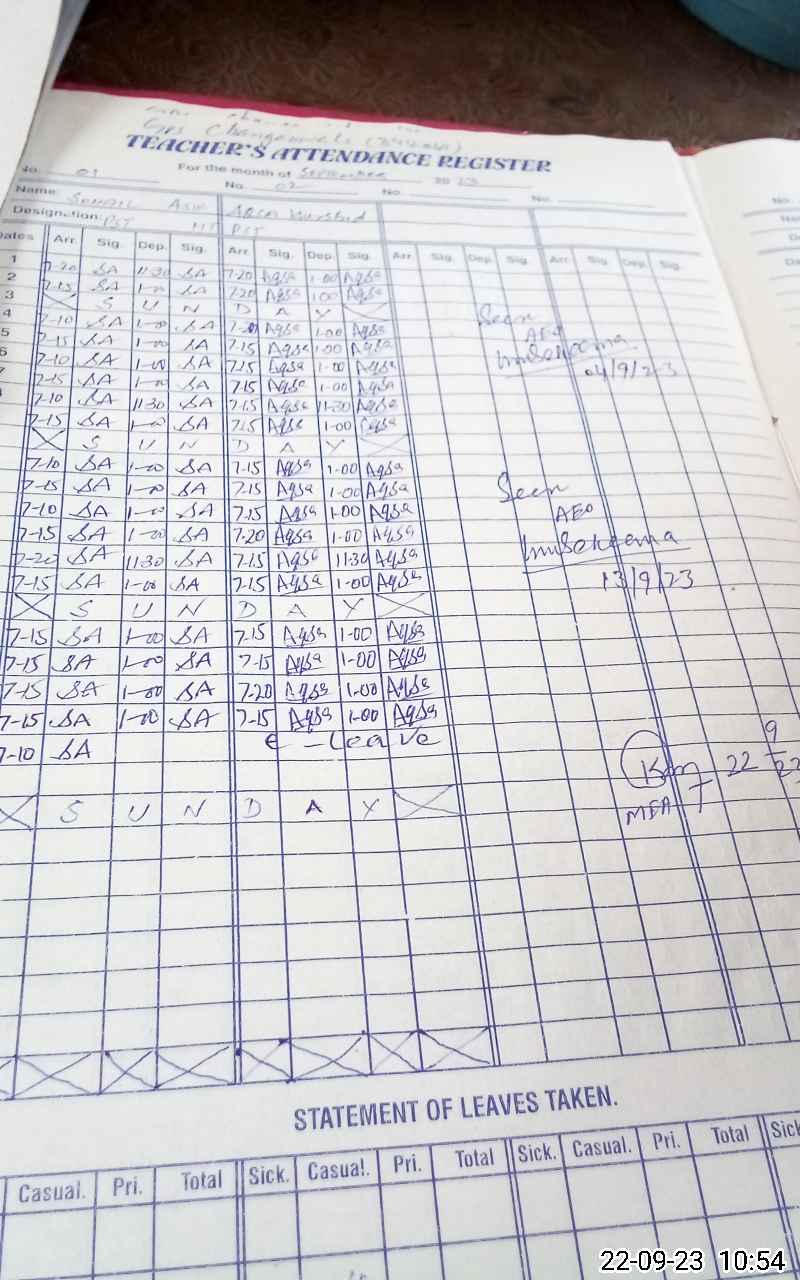 Gps Changanwala
TEACHER'S ATTENDANCE REGISTER
No. 01 For the month of September 2023
No. 02 No. No.
Name: Sohail Asif Aqsa Khurshid
Designation: PST PST
Dates Arr. Sig. Dep. Sig. Arr. Sig. Dep. Sig. Arr Sig. Dep. Sig. Arr. Sig. Dep. Sig.
1 7-20 SA 11-30 SA 7-20 Aqsa 1-00 Aqsa
2 7-15 SA 1-00 SA 7-20 Aqsa 1-00 Aqsa
3 S U N D A Y
4 7-10 SA 1-00 SA 7-20 Aqsa 1-00 Aqsa
5 7-15 SA 1-00 SA 7-15 Aqsa 1-00 Aqsa
6 7-10 SA 1-00 SA 7-15 Aqsa 1-00 Aqsa
7 7-15 SA 1-00 SA 7-15 Aqsa 1-00 Aqsa
7-10 SA 11-30 SA 7-15 Aqsa 11-30 Aqsa
7-15 SA 1-00 SA 7-15 Aqsa 1-00 Aqsa
S U N D A Y
7-10 SA 1-00 SA 7-15 Aqsa 1-00 Aqsa
7-15 SA 1-00 SA 7-15 Aqsa 1-00 Aqsa
7-10 SA 1-00 SA 7-15 Aqsa 1-00 Aqsa
7-15 SA 1-00 SA 7-20 Aqsa 1-00 Aqsa
7-20 SA 11-30 SA 7-15 Aqsa 11-30 Aqsa
7-15 SA 1-00 SA 7-15 Aqsa 1-00 Aqsa
S U N D A Y
7-15 SA 1-00 SA 7-15 Aqsa 1-00 Aqsa
7-15 SA 1-00 SA 7-15 Aqsa 1-00 Aqsa
7-15 SA 1-00 SA 7-20 Aqsa 1-00 Aqsa
7-15 SA 1-00 SA 7-15 Aqsa 1-00 Aqsa
7-10 SA E-Leave
S U N D A Y
Seen
AEO
04/9/23
Seen
AEO
13/9/23
22 9
MEA
STATEMENT OF LEAVES TAKEN.
Casual. Pri. Total Sick. Casual. Pri. Total Sick. Casual. Pri. Total Sick
22-09-23 10:54